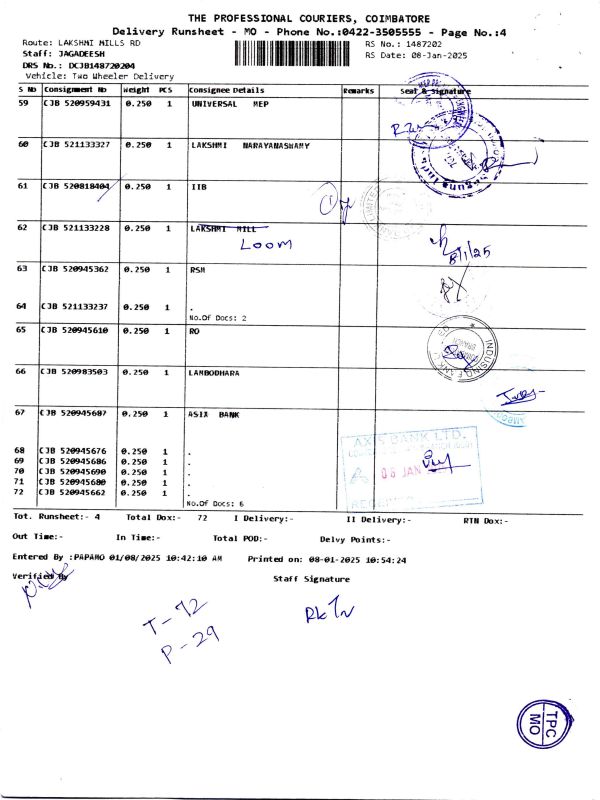 THE PROFESSIONAL COURIERS, COIMBATORE
Delivery Runsheet - MO - Phone No.:0422-3505555 - Page No.:4
Route: LAKSHMI MILLS RD
RS No.: 1487202
Staff: JAGADEESH
RS Date: 08-Jan-2025
DRS No.: DCJB148720204
Vehicle: Two Wheeler Delivery
S No Consignment No Weight PCS Consignee Details Remarks Seal & signature
59 CJB 520959431 0.250 1 UNIVERSAL MEP
60 CJB 521133327 0.250 1 LAKSHMI NARAYANASHAMY
61 CJB 520818404 0.250 1 IIB
62 CJB 521133228 0.250 1 LAKSHMI MILL
LOOM
8/1/25
63 CJB 520945362 0.250 1 RSM
64 CJB 521133237 0.250 1 .
No.Of Docs: 2
65 CJB 520945610 0.250 1 RO
INDUSIND BANK
BRANCH
66 CJB 520983503 0.250 1 LAMBODHARA
67 CJB 520945687 0.250 1 ASIX BANK
AXIS BANK LTD.
08 JAN
68 CJB 520945676 0.250 1 .
69 CJB 520945686 0.250 1 .
70 CJB 520945690 0.250 1 .
71 CJB 520945680 0.250 1 .
72 CJB 520945662 0.250 1 .
No.Of Docs: 6
Tot. Runsheet:- 4 Total Dox:- 72 I Delivery:- II Delivery:- RTN Dox:-
Out Time:- In Time:- Total POD:- Delvy Points:-
Entered By :PAPAMO 01/08/2025 10:42:10 AM Printed on: 08-01-2025 10:54:24
Verified By Staff Signature
T-72
P-29
TPC
MO